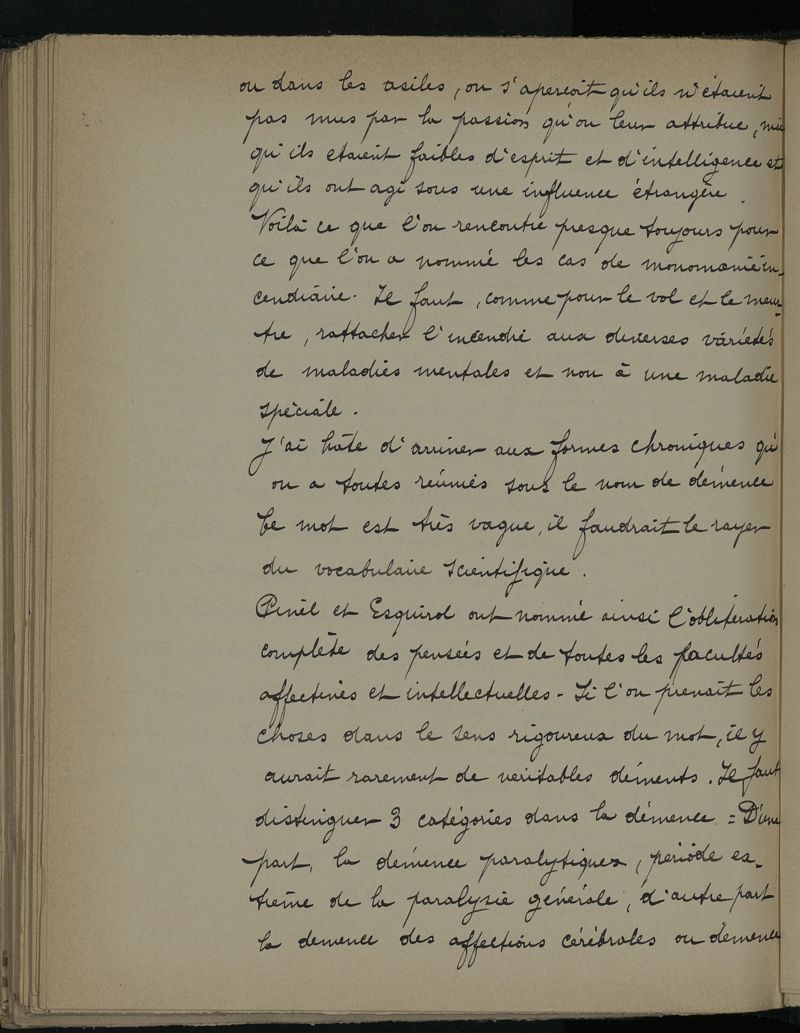 ou dans les asiles, on s'aperçoit qu'ils n'étaient
pas mus par la passion qu'on leur attribue, mais
qu'ils etaient faibles d'esprit et d'intelligence et
qu'ils ont agi sous une influence étrangère.
Voilà ce que l'on rencontre presque toujours pour
ce que l'on a nommé les cas de monomanie in-
cendiaire. Il faut, comme pour le vol et le meur-
tre, rattacher l'incendie aux diverses variétés
de maladies mentales et non à une maladie
spéciale.
J'ai hâte d'arriver aux formes chroniques qu'
on a toutes réunies sous le nom de démence
Ce mot est très vague, il faudrait le rayer
du vocabulaire scientifique.
Pinel et Esquirol ont nommé ainsi l'oblitération
complète des pensées et de toutes les facultés
affectives et intellectuelles - Si l'on prenait les
choses dans le sens rigoureux du mot, il y
aurait rarement de véritables déments. Il faut
distinguer 3 catégories dans la démence = D'une
part, la démence paralytique, période ex-
trême de la paralysie générale, d'autre part
la demence des affections cérébrales ou démence